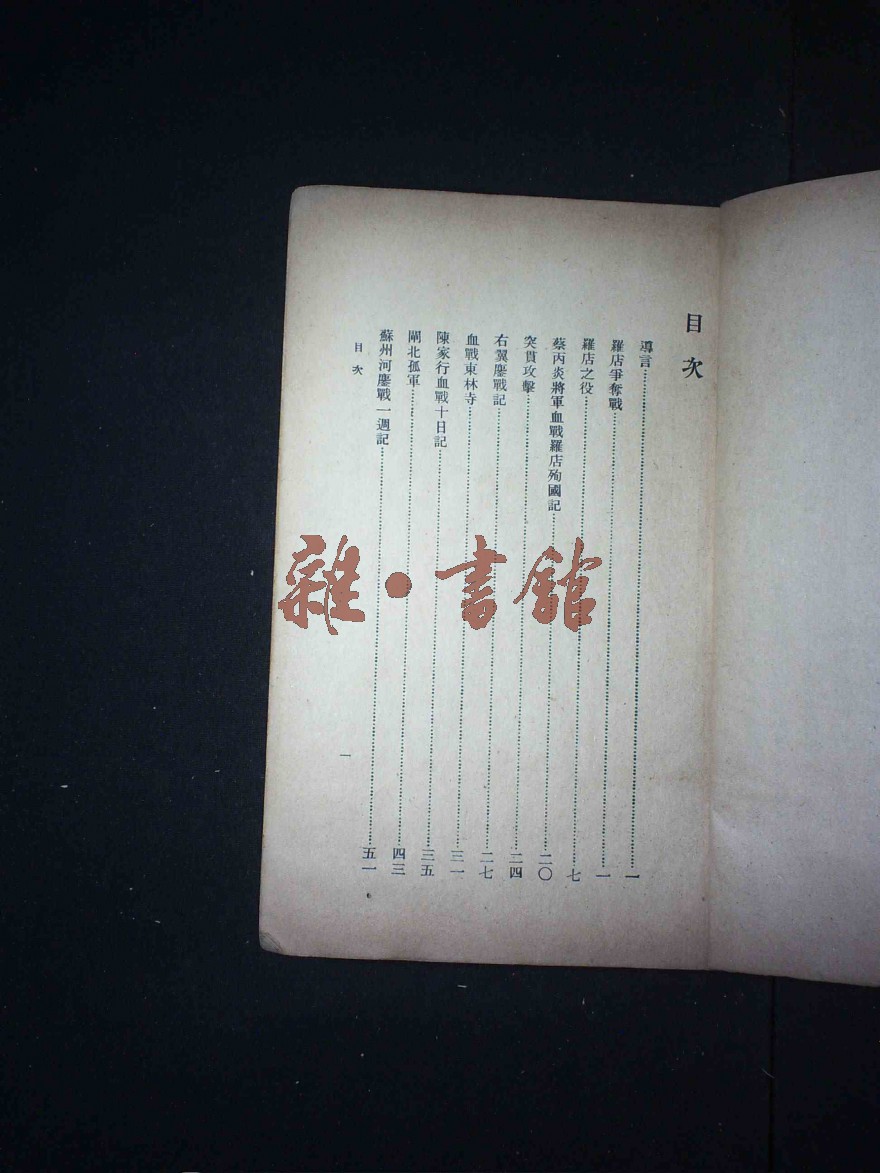 目次
導言一
羅店爭奪戰一
羅店之役七
蔡丙炎將軍血戰羅店殉國記二〇
突貫攻擊二四
右翼鏖戰記二七
血戰東林寺三一
陳家行血戰十日記三五
閘北孤軍四三
蘇州河鏖戰一週記五一
目次
一
雜·書館